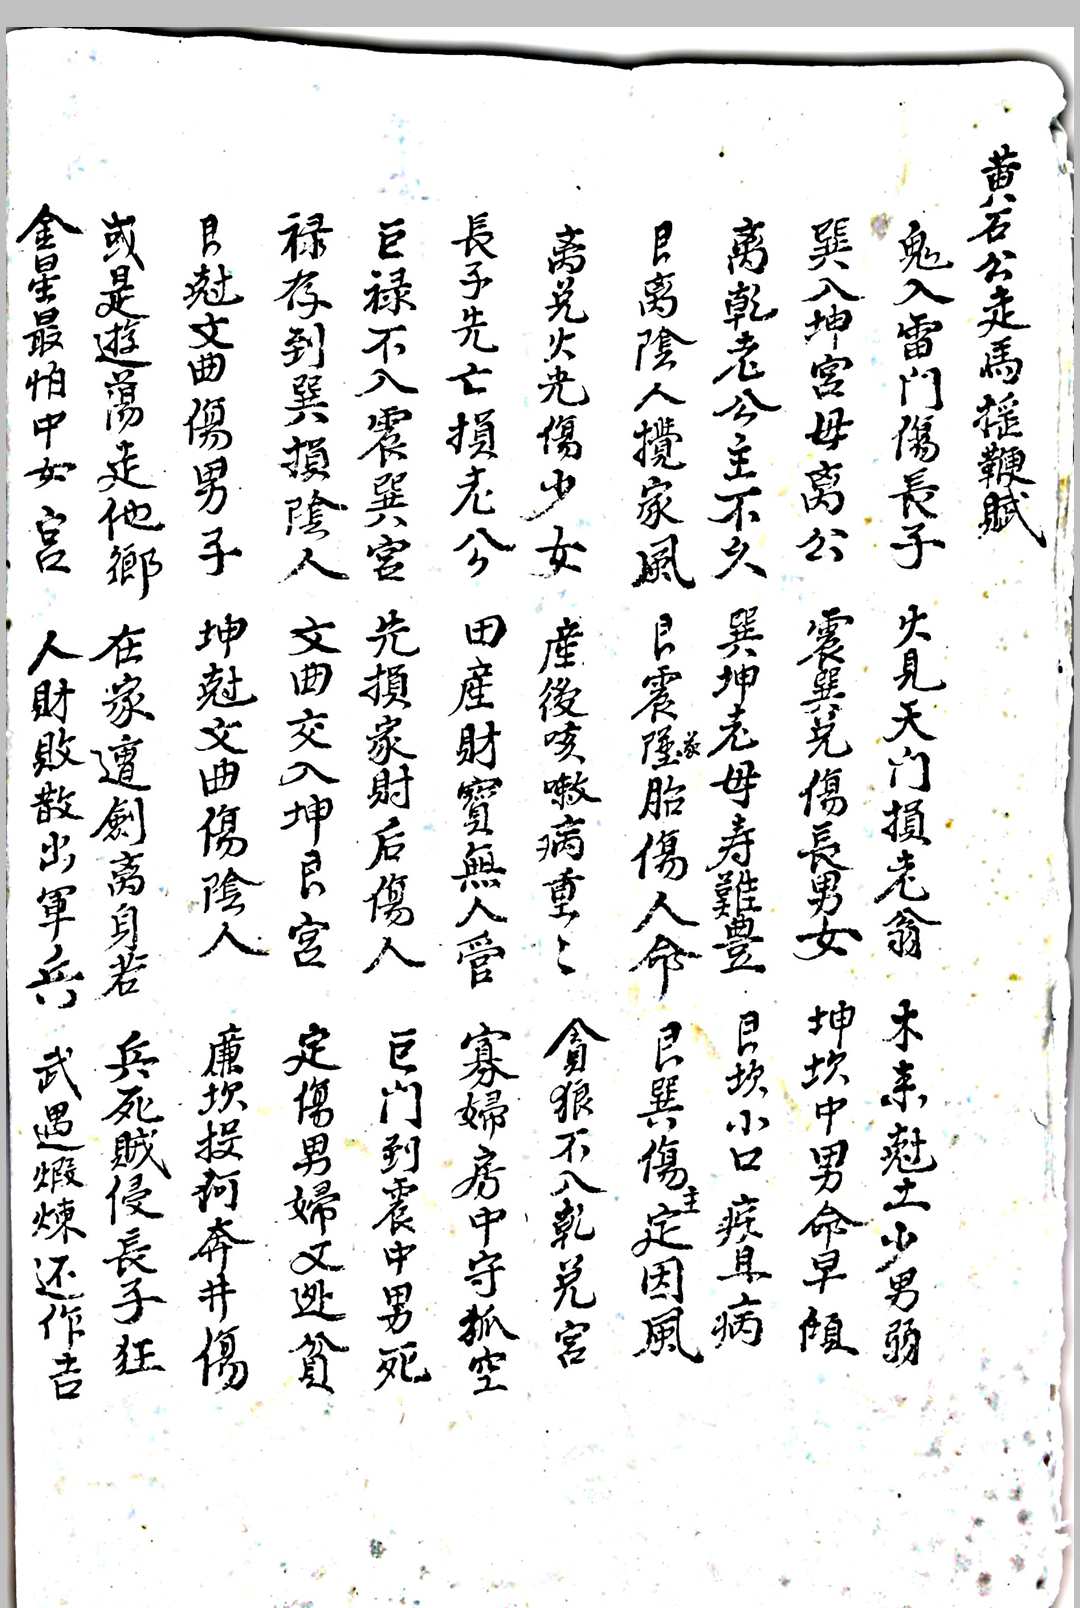 黄石公走馬揺鞭賦
鬼入雷门傷長子 火見天门損老翁 木来尅土少男弱
巽入坤宮母离公 震巽兑傷長男女 坤坎中男命早傾
离乾老公主不久 巽坤老母寿難豊 艮坎小口疾具病
艮离陰人攪家風 艮震墜胎傷人命 艮巽傷主定因風
离兑火光傷少女 産後咳嗽病重〻 貪狼不入乾兑宮
長子先亡損老公 田産財寳無人管 寡婦房中守孤空
巨禄不入震巽宮 先損家財后傷人 巨门到震中男死
禄存到巽損陰人 文曲交入坤艮宮 定傷男婦又逃貧
艮尅文曲傷男子 坤尅文曲傷陰人 廉坎投河奔井傷
或是遊蕩走他鄉 在家遭劍离身若 兵死賊侵長子狂
金星最怕中如宮 人財敗散出軍兵 武遇煅煉还作吉